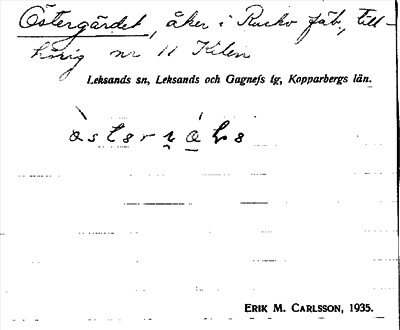 Östergärdet, åker i Rucko fäb., till-
hörig nr 11 Kilen
Leksands sn, Leksands och Gagnefs tg, Kopparbergs län.
ERIK M. CARLSSON, 1935.